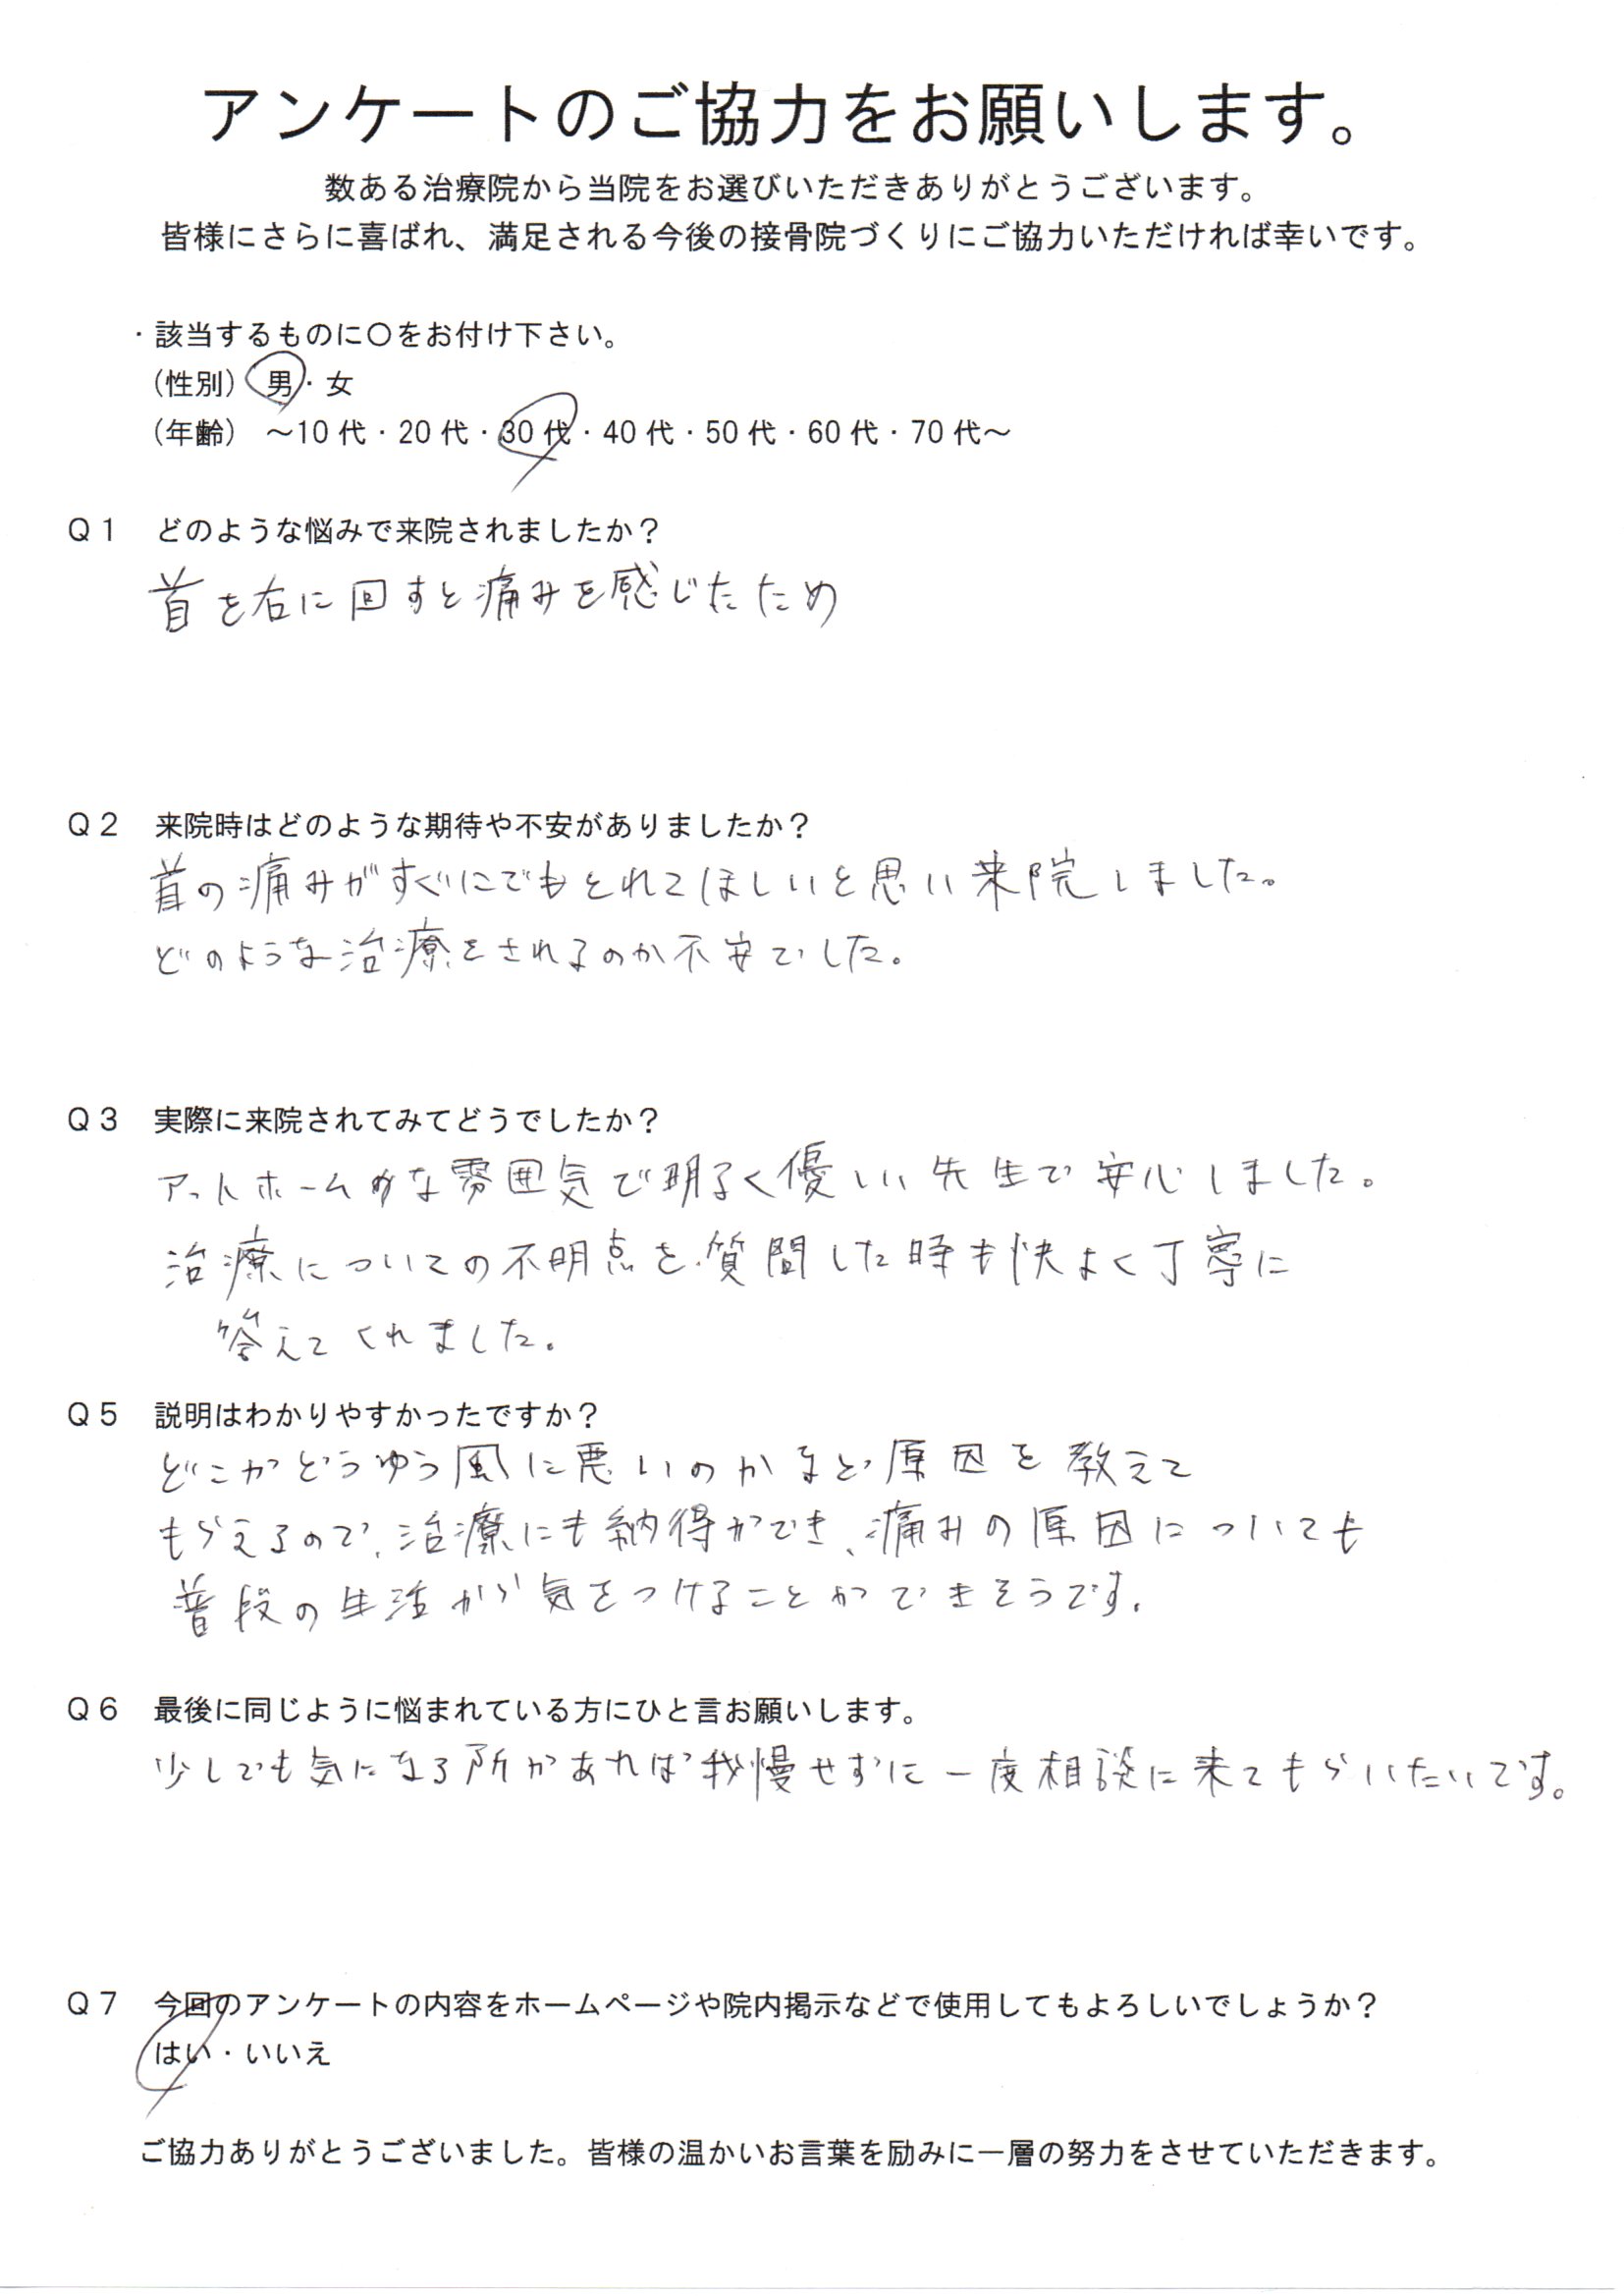 アンケートのご協力をお願いします。
数ある治療院から当院をお選びいただきありがとうございます。
皆様にさらに喜ばれ、満足される今後の接骨院づくりにご協力いただければ幸いです。
・該当するものに○をお付け下さい。
(性別) 男・女
(年齢) ～10代・20代・30代・40代・50代・60代・70代～
Q1 どのような悩みで来院されましたか？
首を右に回すと痛みを感じたため
Q2 来院時はどのような期待や不安がありましたか？
首の痛みがすぐにでもとれてほしいと思い来院しました。
どのような治療をされるのか不安でした。
Q3 実際に来院されてみてどうでしたか？
アットホームな雰囲気で明るく優しい先生で安心しました。
治療についての不明点を質問した時も快よく丁寧に
答えてくれました。
Q5 説明はわかりやすかったですか？
どこがどうゆう風に悪いのかなど原因を教えて
もらえるので、治療にも納得ができ、痛みの原因についても
普段の生活から気をつけることができそうです。
Q6 最後に同じように悩まれている方にひと言お願いします。
少しでも気になる所があれば我慢せずに一度相談に来てもらいたいです。
Q7 今回のアンケートの内容をホームページや院内掲示などで使用してもよろしいでしょうか？
はい・いいえ
ご協力ありがとうございました。皆様の温かいお言葉を励みに一層の努力をさせていただきます。